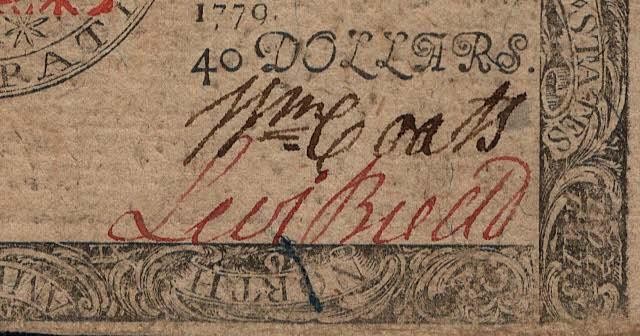 1779.
40 DOLLARS.
Wm Coats
Levi Budd
STATES
NORTH AM